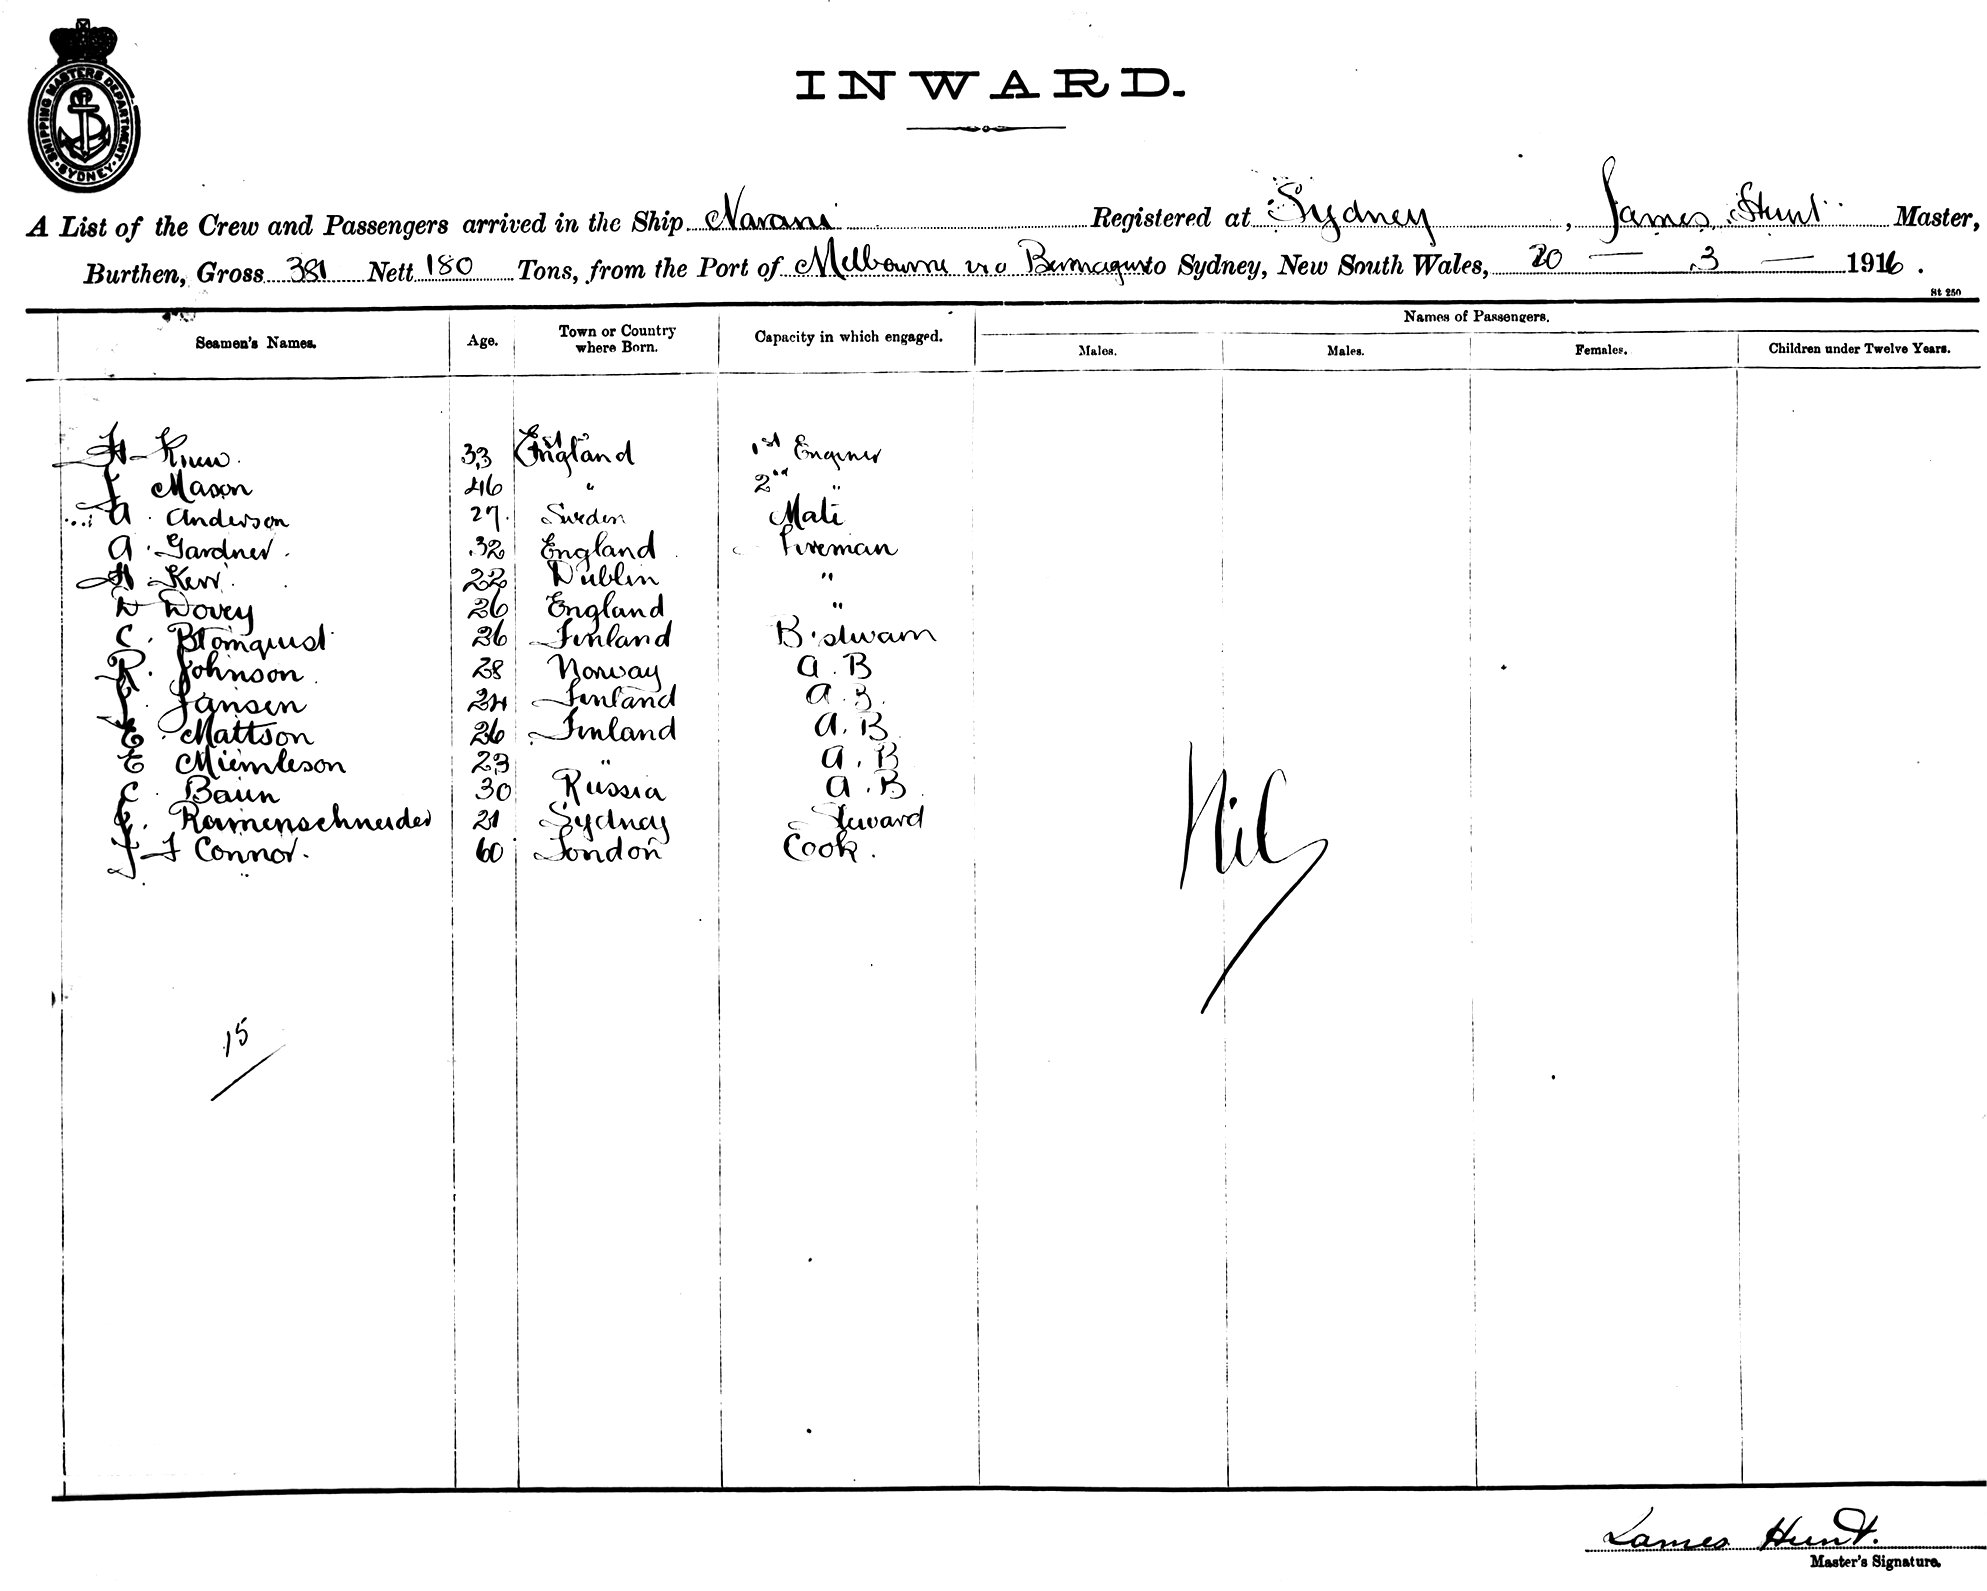 SHIPPING MASTERS DEPARTMENT · SYDNEY ·
INWARD.
A List of the Crew and Passengers arrived in the Ship Narani Registered at Sydney, James Hunt Master,
Burthen, Gross 381 Nett 180 Tons, from the Port of Melbourne via Bermagui to Sydney, New South Wales, 20 — 3 — 1916.
St 250
Names of Passengers.
Seamen's Names. Age. Town or Country where Born. Capacity in which engaged. Males. Males. Females. Children under Twelve Years.
H 33 England 1st Engineer
J Mason 46 " 2nd "
A. Anderson 27 Sweden Mate
A. Gardner 32 England Fireman
H Kerr 22 Dublin "
W Dovey 26 England "
C. Blomquist 26 Finland
R. Johnson 28 Norway A.B
J. Jansen 24 Finland A.B.
E Mattson 26 Finland A.B
E 23 " A.B
C. Baun 30 Russia A.B
Ramenschneider 21 Sydney Steward
J F Connor. 60 London Cook.
Nil
15
James Hunt.
Master's Signature.